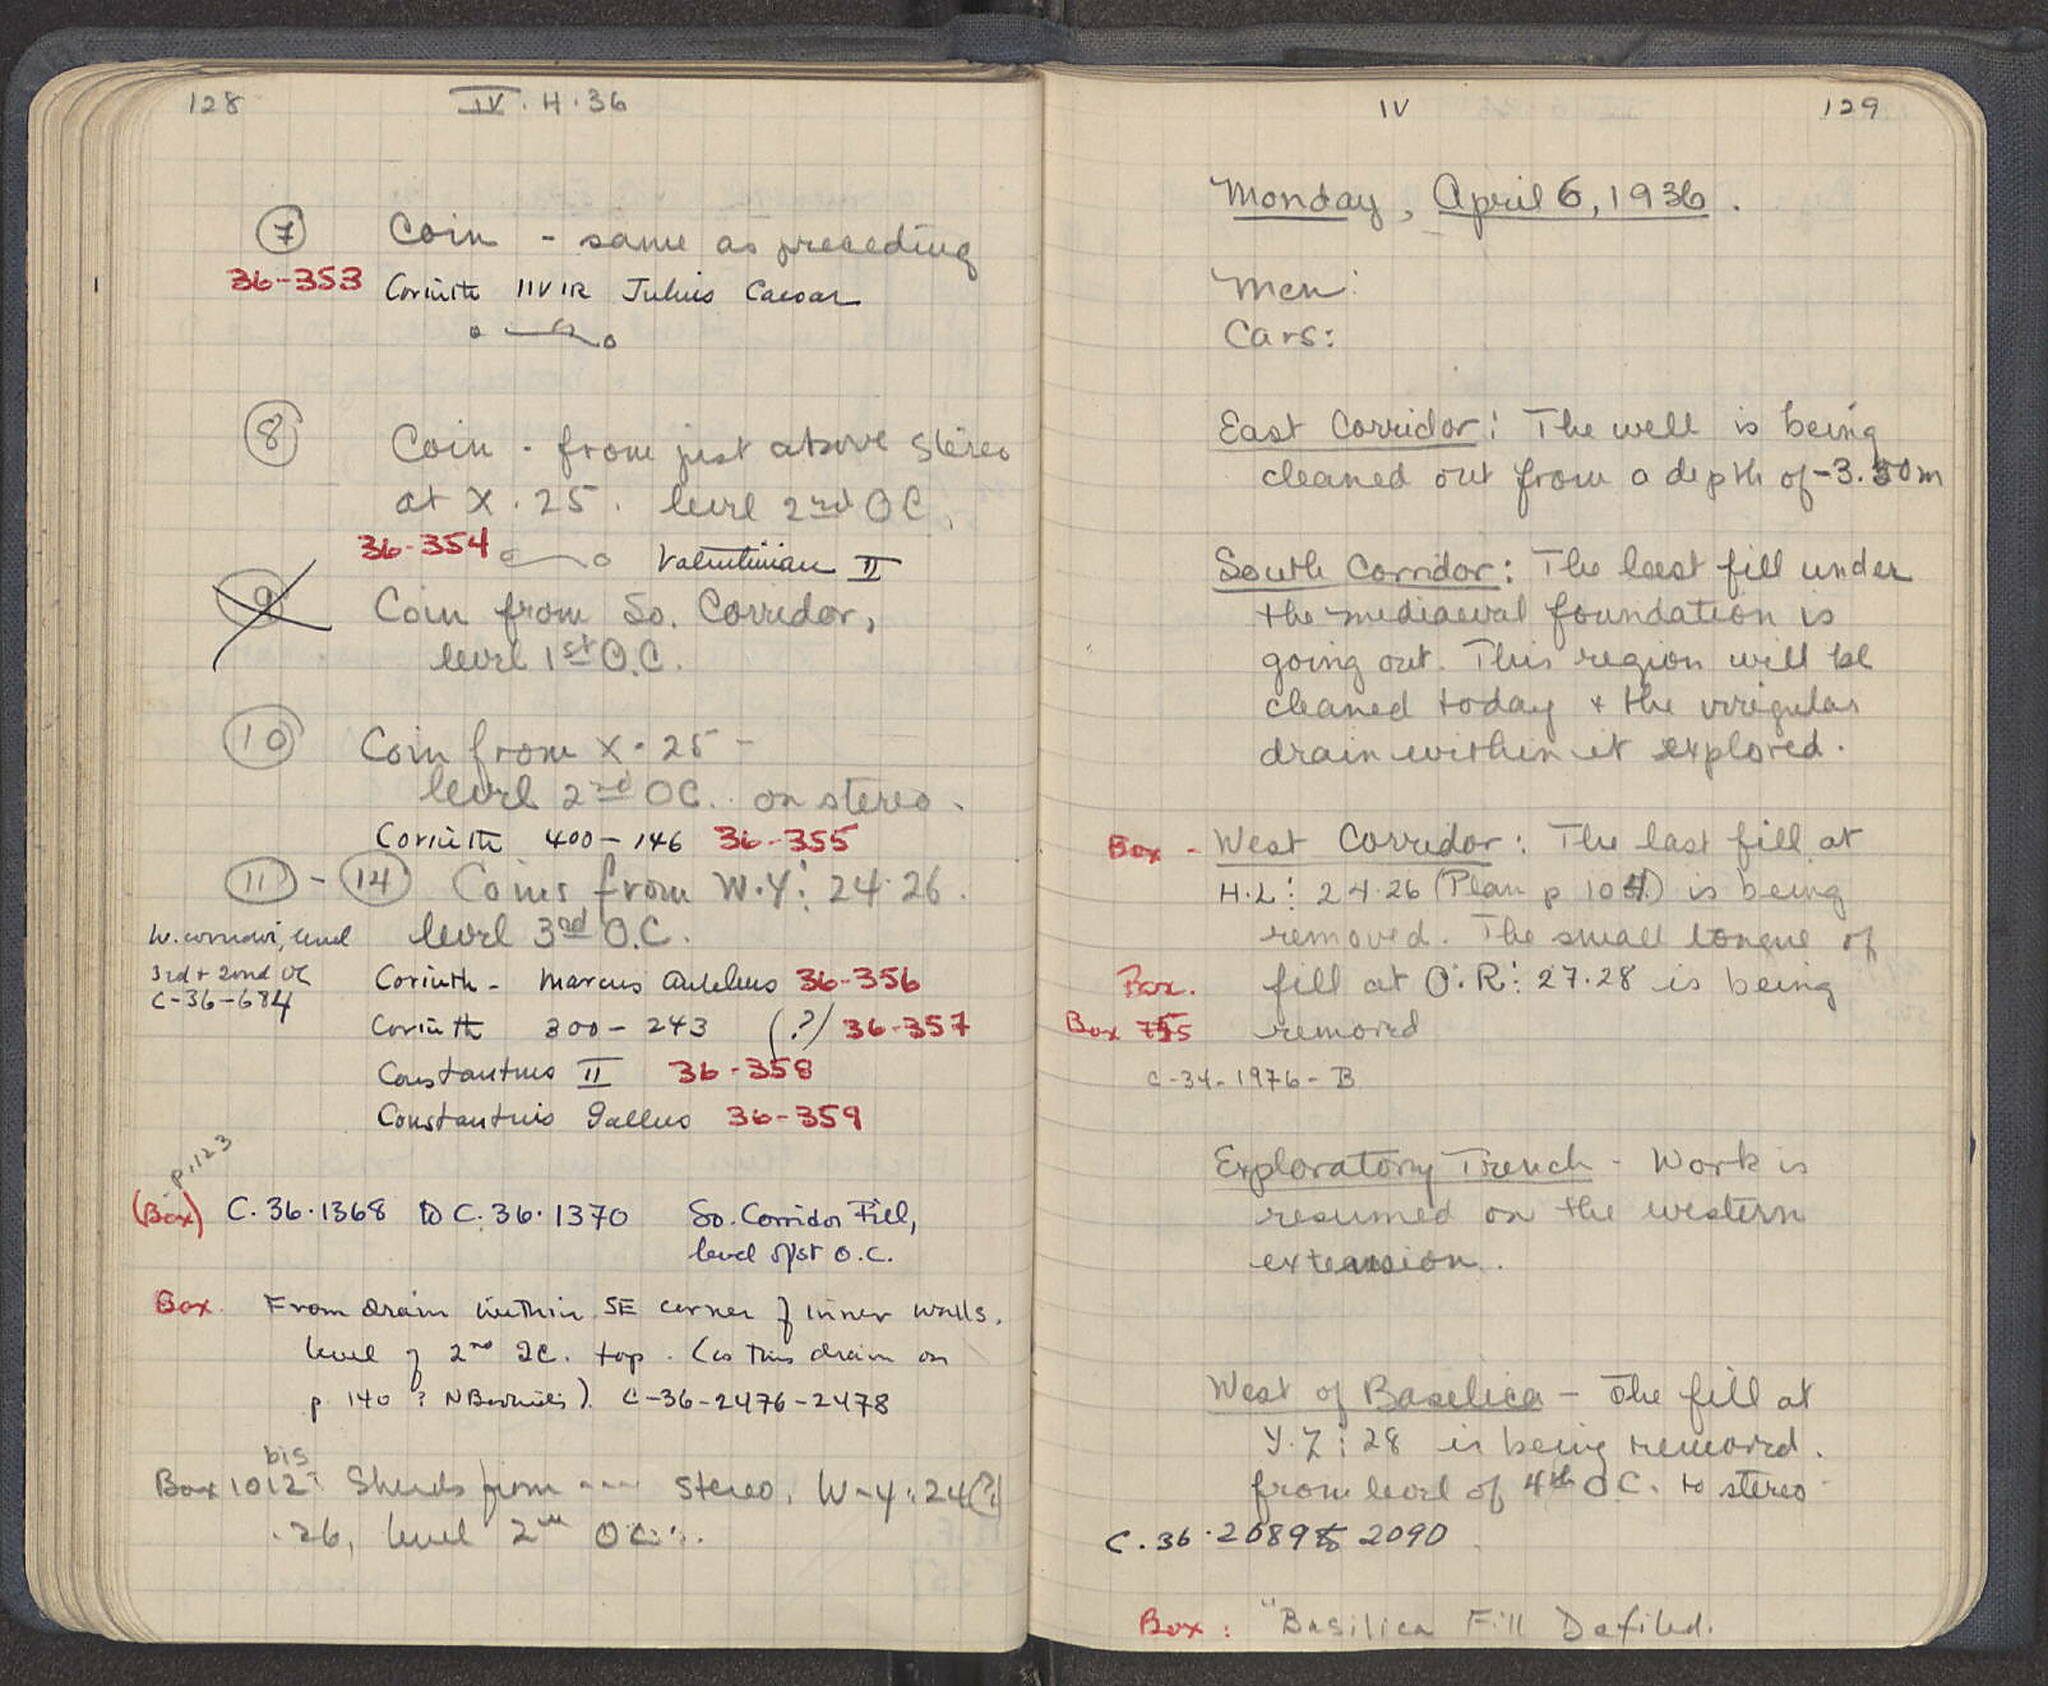 128 IV. 4. 36
7 Coin - same as preceding
36-353 Corinth IIVIR Julius Caesar
8 Coin - from just above stereo
at X. 25. level 2nd OC.
36-354 Valentinian II
9 Coin from So. Corridor,
level 1st O.C.
10 Coin from X. 25 -
level 2nd OC. on stereo.
Corinth 400-146 36-355
11 - 14 Coins from W.Y: 24.26.
level 3rd O.C.
W. corridor, level
3rd + 2nd OC
C-36-684
Corinth - Marcus Aurelius 36-356
Corinth 300-243 (?) 36-357
Constantius II 36-358
Constantius Gallus 36-359
p. 123
(Box) C. 36. 1368 to C. 36. 1370 So. Corridor Fill,
level of 1st O.C.
Box From drain within SE corner of inner walls.
level of 2nd OC. top. (is this drain on
p. 140 ? ). C-36-2476-2478
bis
Box 1012: Sherds from --- stereo, W-Y: 24(?)
.26, level 2nd OC.
IV 129
Monday, April 6, 1936.
Men:
Cars:
East Corridor: The well is being
cleaned out from a depth of -3.50m
South Corridor: The last fill under
the mediaeval foundation is
going out. This region will be
cleaned today + the irregular
drain within it explored.
Box - West Corridor: The last fill at
H.L: 24.26 (Plan p 104) is being
removed. The small tongue of
Box. fill at O.R: 27.28 is being
Box removed
C-34-1976-B
Exploratory Trench - Work is
resumed on the western
extension.
West of Basilica - The fill at
Y.Z: 28 is being removed.
from level of 4th OC. to stereo
C. 36. 2089 to 2090
Box: "Basilica Fill Defiled.